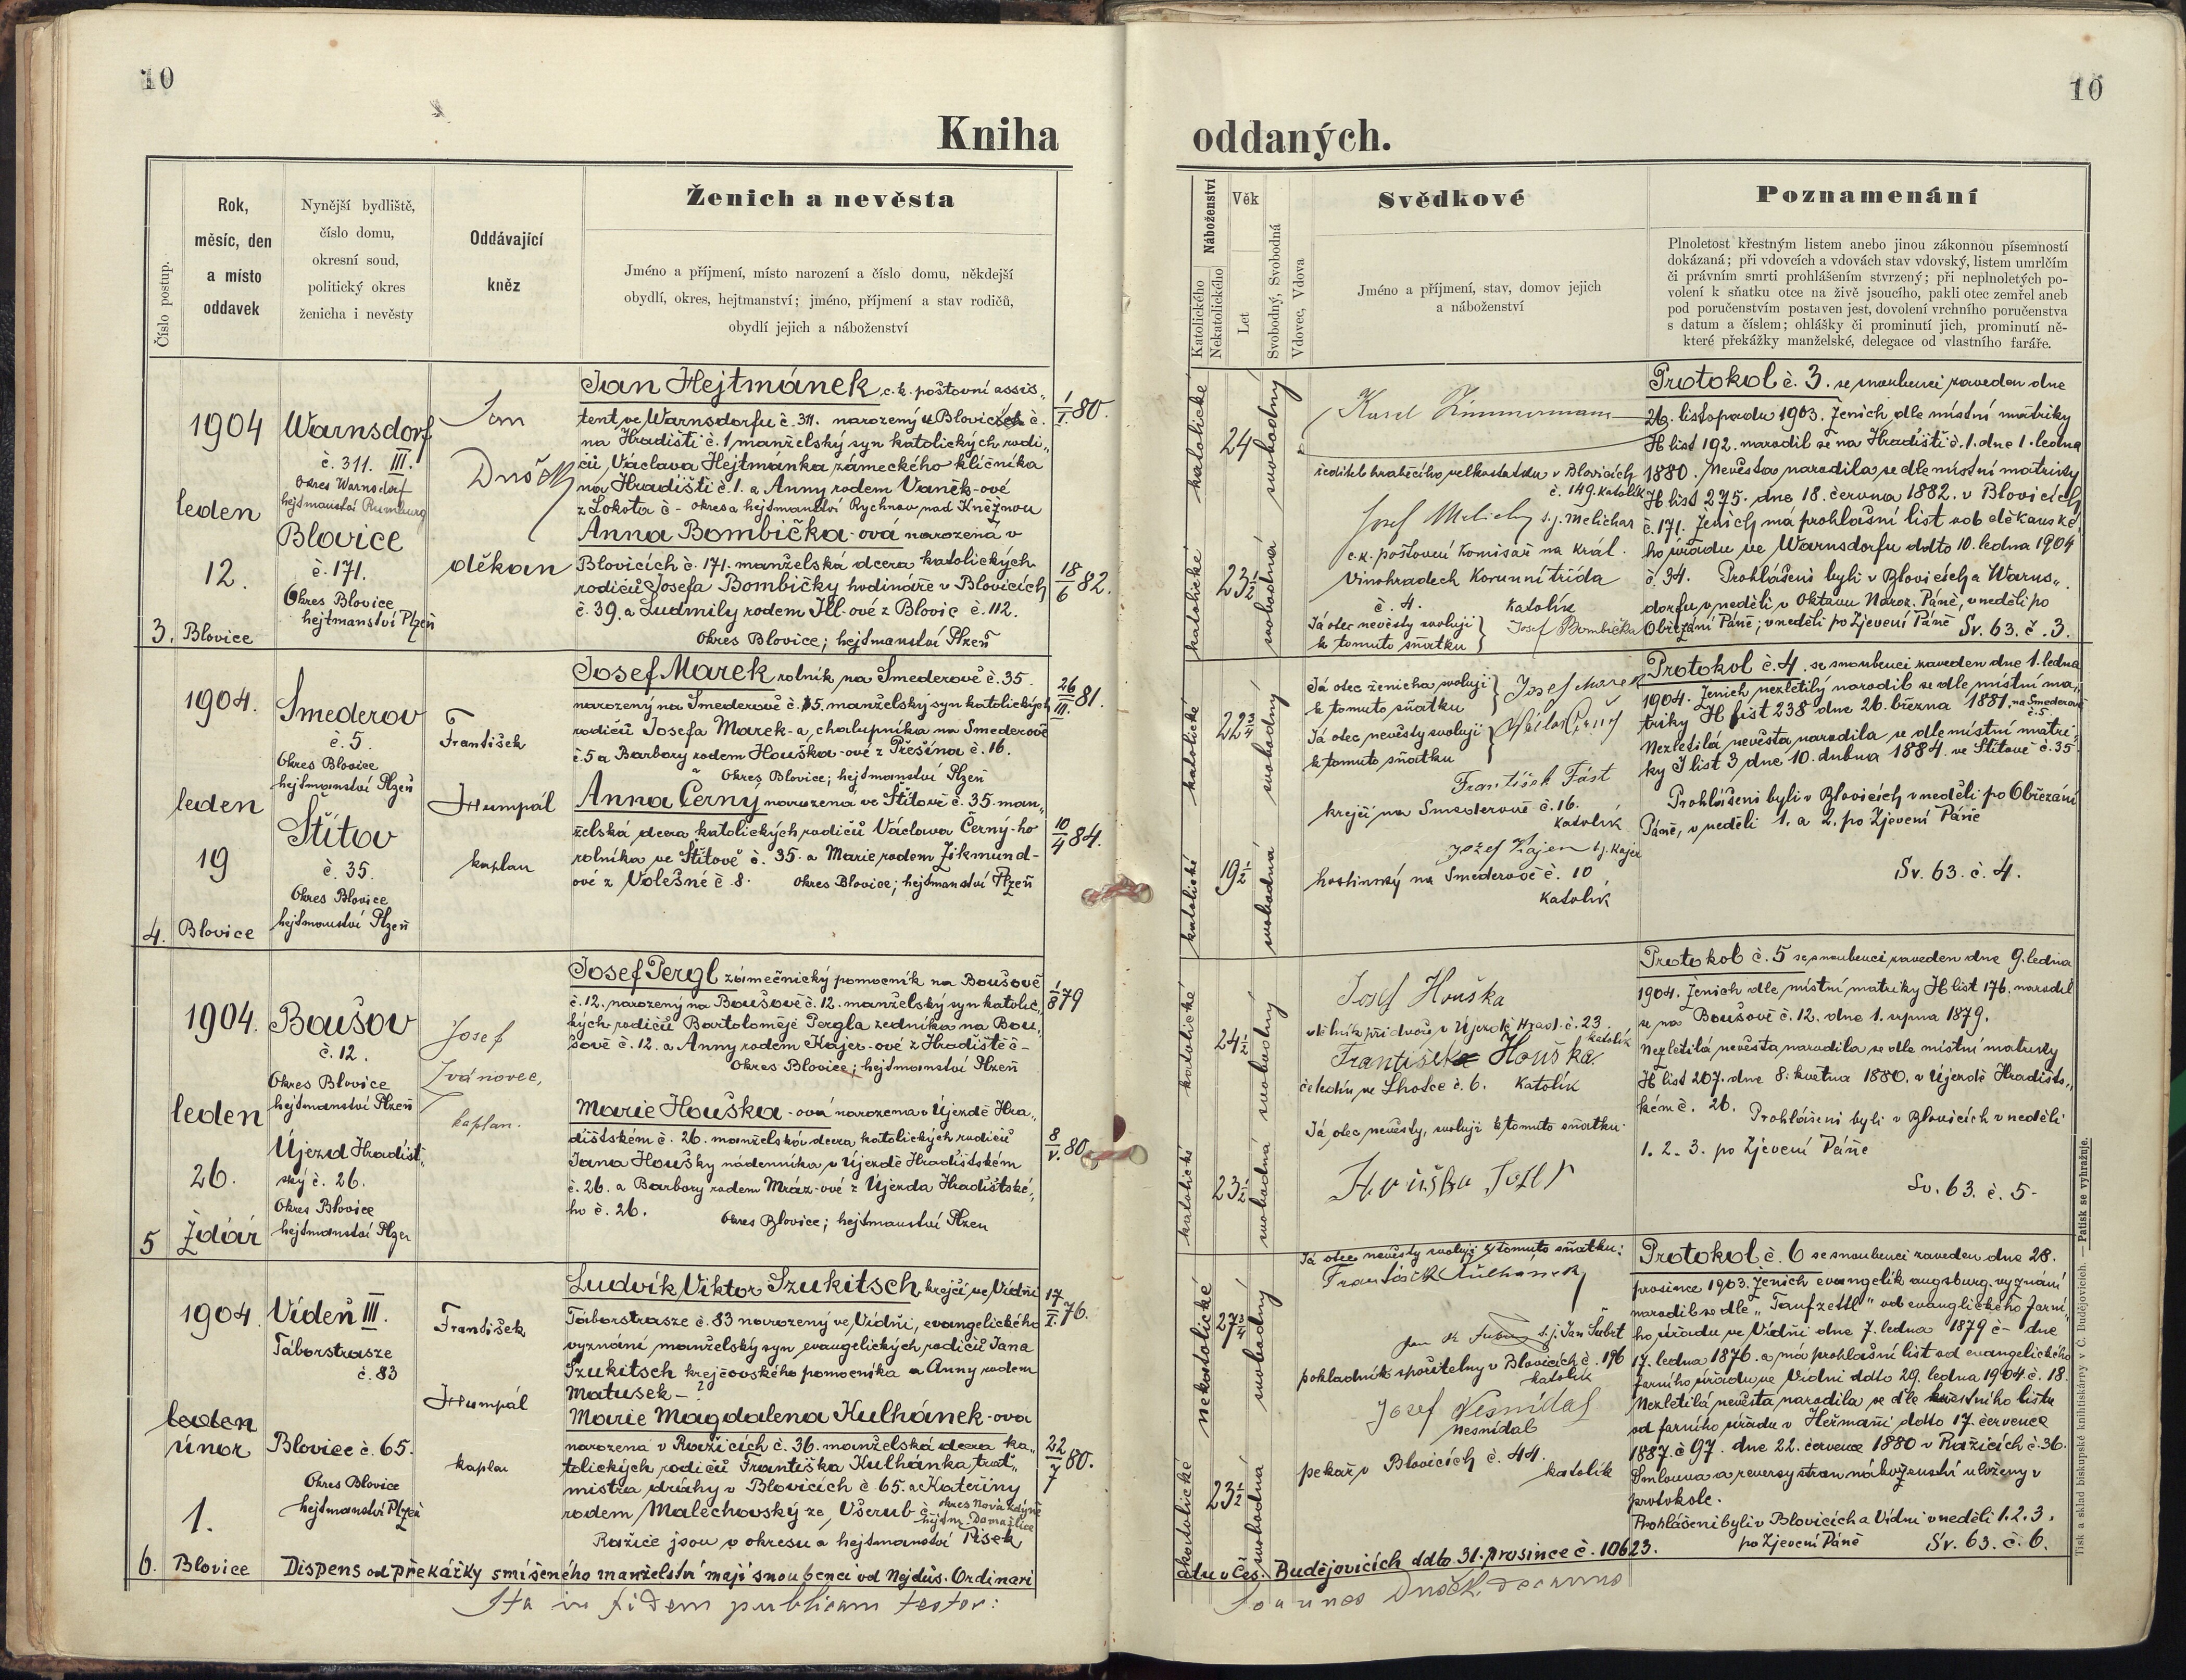 10
10
Kniha
oddaných.
Číslo postup.
Rok,
měsíc, den
a místo
oddavek
Nynější bydliště,
číslo domu,
okresní soud,
politický okres
ženicha i nevěsty
Oddávající
kněz
Ženich a nevěsta
Jméno a příjmení, místo narození a číslo domu, někdejší
obydlí, okres, hejtmanství; jméno, příjmení a stav rodičů,
obydlí jejich a náboženství
Náboženství
Katolického
Nekatolického
Věk
Let
Svobodný, Svobodná
Vdovec, Vdova
Svědkové
Jméno a příjmení, stav, domov jejich
a náboženství
Poznamenání
Plnoletost křestným listem anebo jinou zákonnou písemností
dokázaná; při vdovcích a vdovách stav vdovský, listem umrlčím
či právním smrti prohlášením stvrzený; při neplnoletých po-
volení k sňatku otce na živě jsoucího, pakli otec zemřel aneb
pod poručenstvím postaven jest, dovolení vrchního poručenstva
s datum a číslem; ohlášky či prominutí jich, prominutí ně-
které překážky manželské, delegace od vlastního faráře.
3.
1904
leden
12.
Blovice
Warnsdorf
č. 311. III.
Okres Warnsdorf
hejtmanství Rumburg
Blovice
č. 171.
Okres Blovice
hejtmanství Plzeň
Jan
Dušek
děkan
Jan Hejtmánek, c. k. poštovní assis„
tent ve Warnsdorfu č. 311. narozený u Blovicích č.
na Hradišti č. 1 manželský syn katolických rodi„
čů, Václava Hejtmánka zámeckého klíčníka
na Hradišti č. 1. a Anny rodem Vaněk-ové
z Lokota č - okres a hejtmanství Rychnov nad Kněžnou
1/I. 80.
Anna Bombička-ová narozená v
Blovicích č. 171. manželská dcera katolických
rodičů Josefa Bombičky hodináře v Blovicích
č. 39. a Ludmily rodem Ill-ové z Blovic č. 112.
Okres Blovice; hejtmanství Plzeň
18/6 82.
katolické
24
svobodný
katolické
23 1/2
svobodná
Karel Zimmermann
ředitel hraběcího velkostatku v Blovicích
č. 149. katolík
Josef Melichar s. j. Melichar
c. k. poštovní komisař na Král.
Vinohradech Korunní třída
č. 4. katolík
Já otec nevěsty svoluji
k tomuto sňatku
Josef Bombička
Protokol č. 3. se snoubenci zaveden dne
26. listopadu 1903. Ženich dle místní matriky
H list 192. narodil se na Hradišti č. 1. dne 1. ledna
1880. Nevěsta narodila se dle místní matriky
H list 275. dne 18. června 1882. v Blovicích
č. 171. Ženich má prohlašní list od děkanské„
ho úřadu ve Warnsdorfu ddto 10. ledna 1904
č. 34. Prohlášeni byli v Blovicích a Warns„
dorfu v neděli v Oktávu Naroz. Páně, v neděli po
Obřezání Páně; v neděli po Zjevení Páně Sv. 63. č. 3.
4.
1904.
leden
19
Blovice
Smederov
č. 5.
Okres Blovice
hejtmanství Plzeň
Štítov
č. 35.
Okres Blovice
hejtmanství Plzeň
František
Humpál
kaplan
Josef Marek rolník na Smederově č. 35.
narozený na Smederově č. 5. manželský syn katolických
rodičů Josefa Marek-a, chalupníka na Smederově
č. 5 a Barbory rodem Houška-ové z Přešína č. 16.
Okres Blovice; hejtmanství Plzeň
26/III. 81.
Anna Černý narozená ve Štítově č. 35. man„
želská dcera katolických rodičů Václava Černý-ho
rolníka ve Štítově č. 35. a Marie rodem Zikmund-
ové z Volešné č. 8. Okres Blovice; hejtmanství Plzeň
10/4 84.
katolické
22 3/4
svobodný
katolické
19 1/2
svobodná
Já otec ženicha svoluji
k tomuto sňatku
Josef Marek
Já otec nevěsty svoluji
k tomuto sňatku
František Fást
krejčí na Smederově č. 16.
katolík
Jozef Kajer s. j. Kajer
hostinský na Smederově č. 10
katolík
Protokol č. 4. se snoubenci zaveden dne 1. ledna
1904. Ženich nezletilý narodil se dle místní ma„
triky H list 238 dne 26. března 1881. na Smederově
č. 5.
Nezletilá nevěsta narodila se dle místní matri„
ky I list 3 dne 10. dubna 1884. ve Štítově č. 35
Prohlášeni byli v Blovicích v neděli po Obřezání
Páně, v neděli 1. a 2. po Zjevení Páně
Sv. 63. č. 4.
5
1904.
leden
26.
Ždár
Boušov
č. 12.
Okres Blovice
hejtmanství Plzeň
Újezd Hradišt„
ský č. 26.
Okres Blovice
hejtmanství Plzeň
Josef
Ivánovec,
kaplan.
Josef Pergl zámečnický pomocník na Boušově
č. 12. narozený na Boušově č. 12. manželský syn katolic„
kých rodičů Bartoloměje Pergla zedníka na Bou„
šově č. 12. a Anny rodem Kajer-ové z Hradiště č -
Okres Blovice; hejtmanství Plzeň
1/8 79
Marie Houška-ová narozena v Újezdě Hra„
dištském č. 26. manželská dcera katolických rodičů
Jana Houšky nádenníka v Újezdě Hradištském
č. 26. a Barbory rodem Mráz-ové z Újezda Hradištské„
ho č. 26.
Okres Blovice; hejtmanství Plzeň
8/V. 80.
katolické
24 1/2
svobodný
katolické
23 1/2
svobodná
Josef Houška
dělník při dvoře v Újezdě Hrad. č. 23. katolík
František Houška
čeledín ve Lhotce č. 6. katolík
Já, otec nevěsty, svoluji k tomuto sňatku.
Protokol č. 5 se snoubenci zaveden dne 9. ledna
1904. Ženich dle místní matriky H list 176. narodil
se na Boušově č. 12. dne 1. srpna 1879.
Nezletilá nevěsta narodila se dle místní matriky
H list 207. dne 8. května 1880. v Újezdě Hradišts„
kém č. 26. Prohlášeni byli v Blovicích v neděli
1. 2. 3. po Zjevení Páně
Sv. 63. č. 5.
6.
1904.
leden
únor
1.
Blovice
Vídeň III.
Táborstrasze
č. 83
Blovice č. 65.
Okres Blovice
hejtmanství Plzeň
František
Humpál
kaplan
Ludvík Viktor Szukitsch krejčí ve Vídni
Táborstrasze č. 83 narozený ve Vídni, evangelického
vyznání manželský syn evangelických rodičů Jana
Szukitsch krejčovského pomocníka a Anny rodem
Matusek - ?
17/I. 76.
Marie Magdalena Kulhánek-ova
narozena v Ražicích č. 36. manželská dcera ka„
tolických rodičů Františka Kulhánka, trať„
mistra dráhy v Blovicích č. 65. a Kateřiny
rodem Malechovský ze Všerub č. okres Nová Kdyně
hejtm. Domažlice
Ražice jsou v okresu a hejtmanství Písek
22/7 80.
nekatolické
27 3/4
svobodný
katolické
23 1/2
svobodná
Já otec nevěsty svoluji k tomuto sňatku:
František Kulhanek
s. j. Jan Šubrt
pokladník spořitelny v Blovicích č. 196
katolík
Jozef Nesnídal
Nesnídal
pekař v Blovicích č. 44.
katolík
Protokol č. 6 se snoubenci zaveden dne 28.
prosince 1903. Ženich evangelík augsburg. vyznání
narodil se dle „Taufzettl“ od evanglického farní„
ho úřadu ve Vídni dne 7. ledna 1879 č - dne
17. ledna 1876. a má prohlašní list od evangelického
farního úřadu ve Vídni ddto 29. ledna 1904 č. 18.
Nezletilá nevěsta narodila se dle křestního listu
od farního úřadu v Heřmani ddto 17. července
1887. č 97. dne 22. července 1880 v Ražicích č. 36.
Smlouva a reversy stran náboženství uloženy v
protokole.
Prohlášeni byli v Blovicích a Vídni v neděli 1. 2. 3.
po Zjevení Páně Sv. 63. č. 6.
Dispens od překážky smíšeného manželství mají snoubenci od Nejdůs. Ordinari
átu v Čes. Budějovicích ddto. 31. prosince č. 10623.
Ita in fidem publicam testor:
Joannes Dušek decanus
Tisk a sklad biskupské knihtiskárny v Č. Budějovicích. — Patisk se vyhražuje.